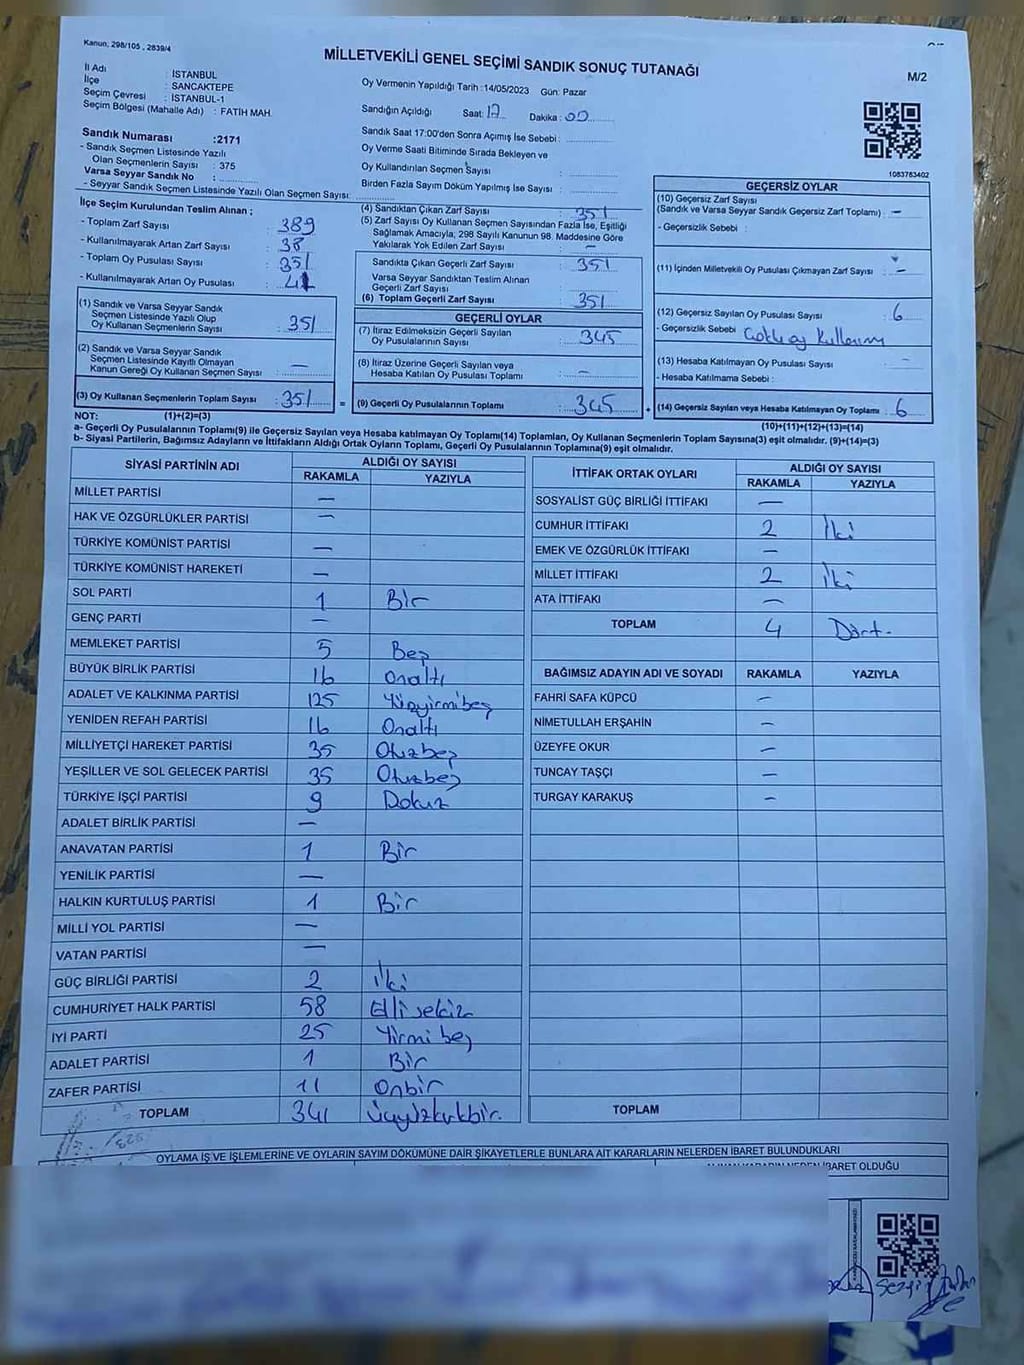 Kanun; 298/105 , 2839/4
MİLLETVEKİLİ GENEL SEÇİMİ SANDIK SONUÇ TUTANAĞI
M/2
İl Adı : İSTANBUL
İlçe : SANCAKTEPE
Seçim Çevresi : İSTANBUL-1
Seçim Bölgesi (Mahalle Adı) : FATİH MAH.
Sandık Numarası :2171
- Sandık Seçmen Listesinde Yazılı
Olan Seçmenlerin Sayısı : 375
Varsa Seyyar Sandık No :
- Seyyar Sandık Seçmen Listesinde Yazılı Olan Seçmen Sayısı:
Oy Vermenin Yapıldığı Tarih :14/05/2023 Gün: Pazar
Sandığın Açıldığı Saat: 17 Dakika : 00
Sandık Saat 17:00'den Sonra Açılmış İse Sebebi :
Oy Verme Saati Bitiminde Sırada Bekleyen ve
Oy Kullandırılan Seçmen Sayısı :
Birden Fazla Sayım Döküm Yapılmış İse Sayısı :
1083783402
İlçe Seçim Kurulundan Teslim Alınan ;
- Toplam Zarf Sayısı : 389
- Kullanılmayarak Artan Zarf Sayısı : 38
- Toplam Oy Pusulası Sayısı : 351
- Kullanılmayarak Artan Oy Pusulası :
(1) Sandık ve Varsa Seyyar Sandık
Seçmen Listesinde Yazılı Olup
Oy Kullanan Seçmenlerin Sayısı : 351
(2) Sandık ve Varsa Seyyar Sandık
Seçmen Listesinde Kayıtlı Olmayan
Kanun Gereği Oy Kullanan Seçmen Sayısı : —
(3) Oy Kullanan Seçmenlerin Toplam Sayısı : 351 =
(4) Sandıktan Çıkan Zarf Sayısı : 351
(5) Zarf Sayısı Oy Kullanan Seçmen Sayısından Fazla İse, Eşitliği
Sağlamak Amacıyla; 298 Sayılı Kanunun 98. Maddesine Göre
Yakılarak Yok Edilen Zarf Sayısı : —
Sandıkta Çıkan Geçerli Zarf Sayısı : 351
Varsa Seyyar Sandıktan Teslim Alınan
Geçerli Zarf Sayısı :
(6) Toplam Geçerli Zarf Sayısı : 351
GEÇERLİ OYLAR
(7) İtiraz Edilmeksizin Geçerli Sayılan
Oy Pusulalarının Sayısı : 345
(8) İtiraz Üzerine Geçerli Sayılan veya
Hesaba Katılan Oy Pusulası Toplamı : —
(9) Geçerli Oy Pusulalarının Toplamı : 345 +
GEÇERSİZ OYLAR
(10) Geçersiz Zarf Sayısı
(Sandık ve Varsa Seyyar Sandık Geçersiz Zarf Toplamı) : —
- Geçersizlik Sebebi :
(11) İçinden Milletvekili Oy Pusulası Çıkmayan Zarf Sayısı : —
(12) Geçersiz Sayılan Oy Pusulası Sayısı : 6
- Geçersizlik Sebebi :
(13) Hesaba Katılmayan Oy Pusulası Sayısı : —
- Hesaba Katılmama Sebebi :
(14) Geçersiz Sayılan veya Hesaba Katılmayan Oy Toplamı : 6
NOT: (1)+(2)=(3)
(10)+(11)+(12)+(13)=(14)
a- Geçerli Oy Pusulalarının Toplamı(9) ile Geçersiz Sayılan veya Hesaba katılmayan Oy Toplamı(14) Toplamları, Oy Kullanan Seçmenlerin Toplam Sayısına(3) eşit olmalıdır. (9)+(14)=(3)
b- Siyasi Partilerin, Bağımsız Adayların ve İttifakların Aldığı Ortak Oyların Toplamı, Geçerli Oy Pusulalarının Toplamına(9) eşit olmalıdır.
SİYASİ PARTİNİN ADI ALDIĞI OY SAYISI
RAKAMLA YAZIYLA
MİLLET PARTİSİ —
HAK VE ÖZGÜRLÜKLER PARTİSİ —
TÜRKİYE KOMÜNİST PARTİSİ —
TÜRKİYE KOMÜNİST HAREKETİ —
SOL PARTİ 1 Bir
GENÇ PARTİ —
MEMLEKET PARTİSİ 5 Beş
BÜYÜK BİRLİK PARTİSİ 16 Onaltı
ADALET VE KALKINMA PARTİSİ 125 Yüzyirmibeş
YENİDEN REFAH PARTİSİ 16 Onaltı
MİLLİYETÇİ HAREKET PARTİSİ 35 Otuzbeş
YEŞİLLER VE SOL GELECEK PARTİSİ 35 Otuzbeş
TÜRKİYE İŞÇİ PARTİSİ 9 Dokuz
ADALET BİRLİK PARTİSİ —
ANAVATAN PARTİSİ 1 Bir
YENİLİK PARTİSİ —
HALKIN KURTULUŞ PARTİSİ 1 Bir
MİLLİ YOL PARTİSİ —
VATAN PARTİSİ —
GÜÇ BİRLİĞİ PARTİSİ 2 İki
CUMHURİYET HALK PARTİSİ 58 Ellisekiz
İYİ PARTİ 25 Yirmibeş
ADALET PARTİSİ 1 Bir
ZAFER PARTİSİ 11 Onbir
TOPLAM 341 Üçyüzkırkbir.
İTTİFAK ORTAK OYLARI ALDIĞI OY SAYISI
RAKAMLA YAZIYLA
SOSYALİST GÜÇ BİRLİĞİ İTTİFAKI —
CUMHUR İTTİFAKI 2 İki
EMEK VE ÖZGÜRLÜK İTTİFAKI —
MİLLET İTTİFAKI 2 İki
ATA İTTİFAKI —
TOPLAM 4 Dört.
BAĞIMSIZ ADAYIN ADI VE SOYADI RAKAMLA YAZIYLA
FAHRİ SAFA KÜPCÜ —
NİMETULLAH ERŞAHİN —
ÜZEYFE OKUR —
TUNCAY TAŞÇI —
TURGAY KARAKUŞ —
TOPLAM
OYLAMA İŞ VE İŞLEMLERİNE VE OYLARIN SAYIM DÖKÜMÜNE DAİR ŞİKAYETLERLE BUNLARA AİT KARARLARIN NELERDEN İBARET BULUNDUKLARI
ALINAN KARARIN NEDEN İBARET OLDUĞU